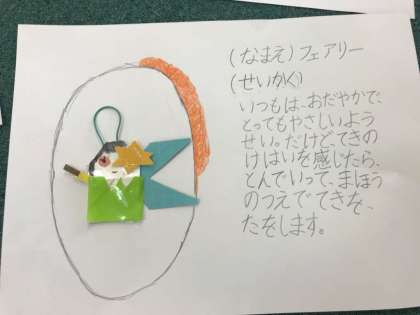 (なまえ)フェアリー
(せいかく)
いつもは、おだやかで、
とってもやさしいよう
せい。だけどてきの
けはいを感じたら、
とんでいって、まほう
のつえでてきを、
たをします。